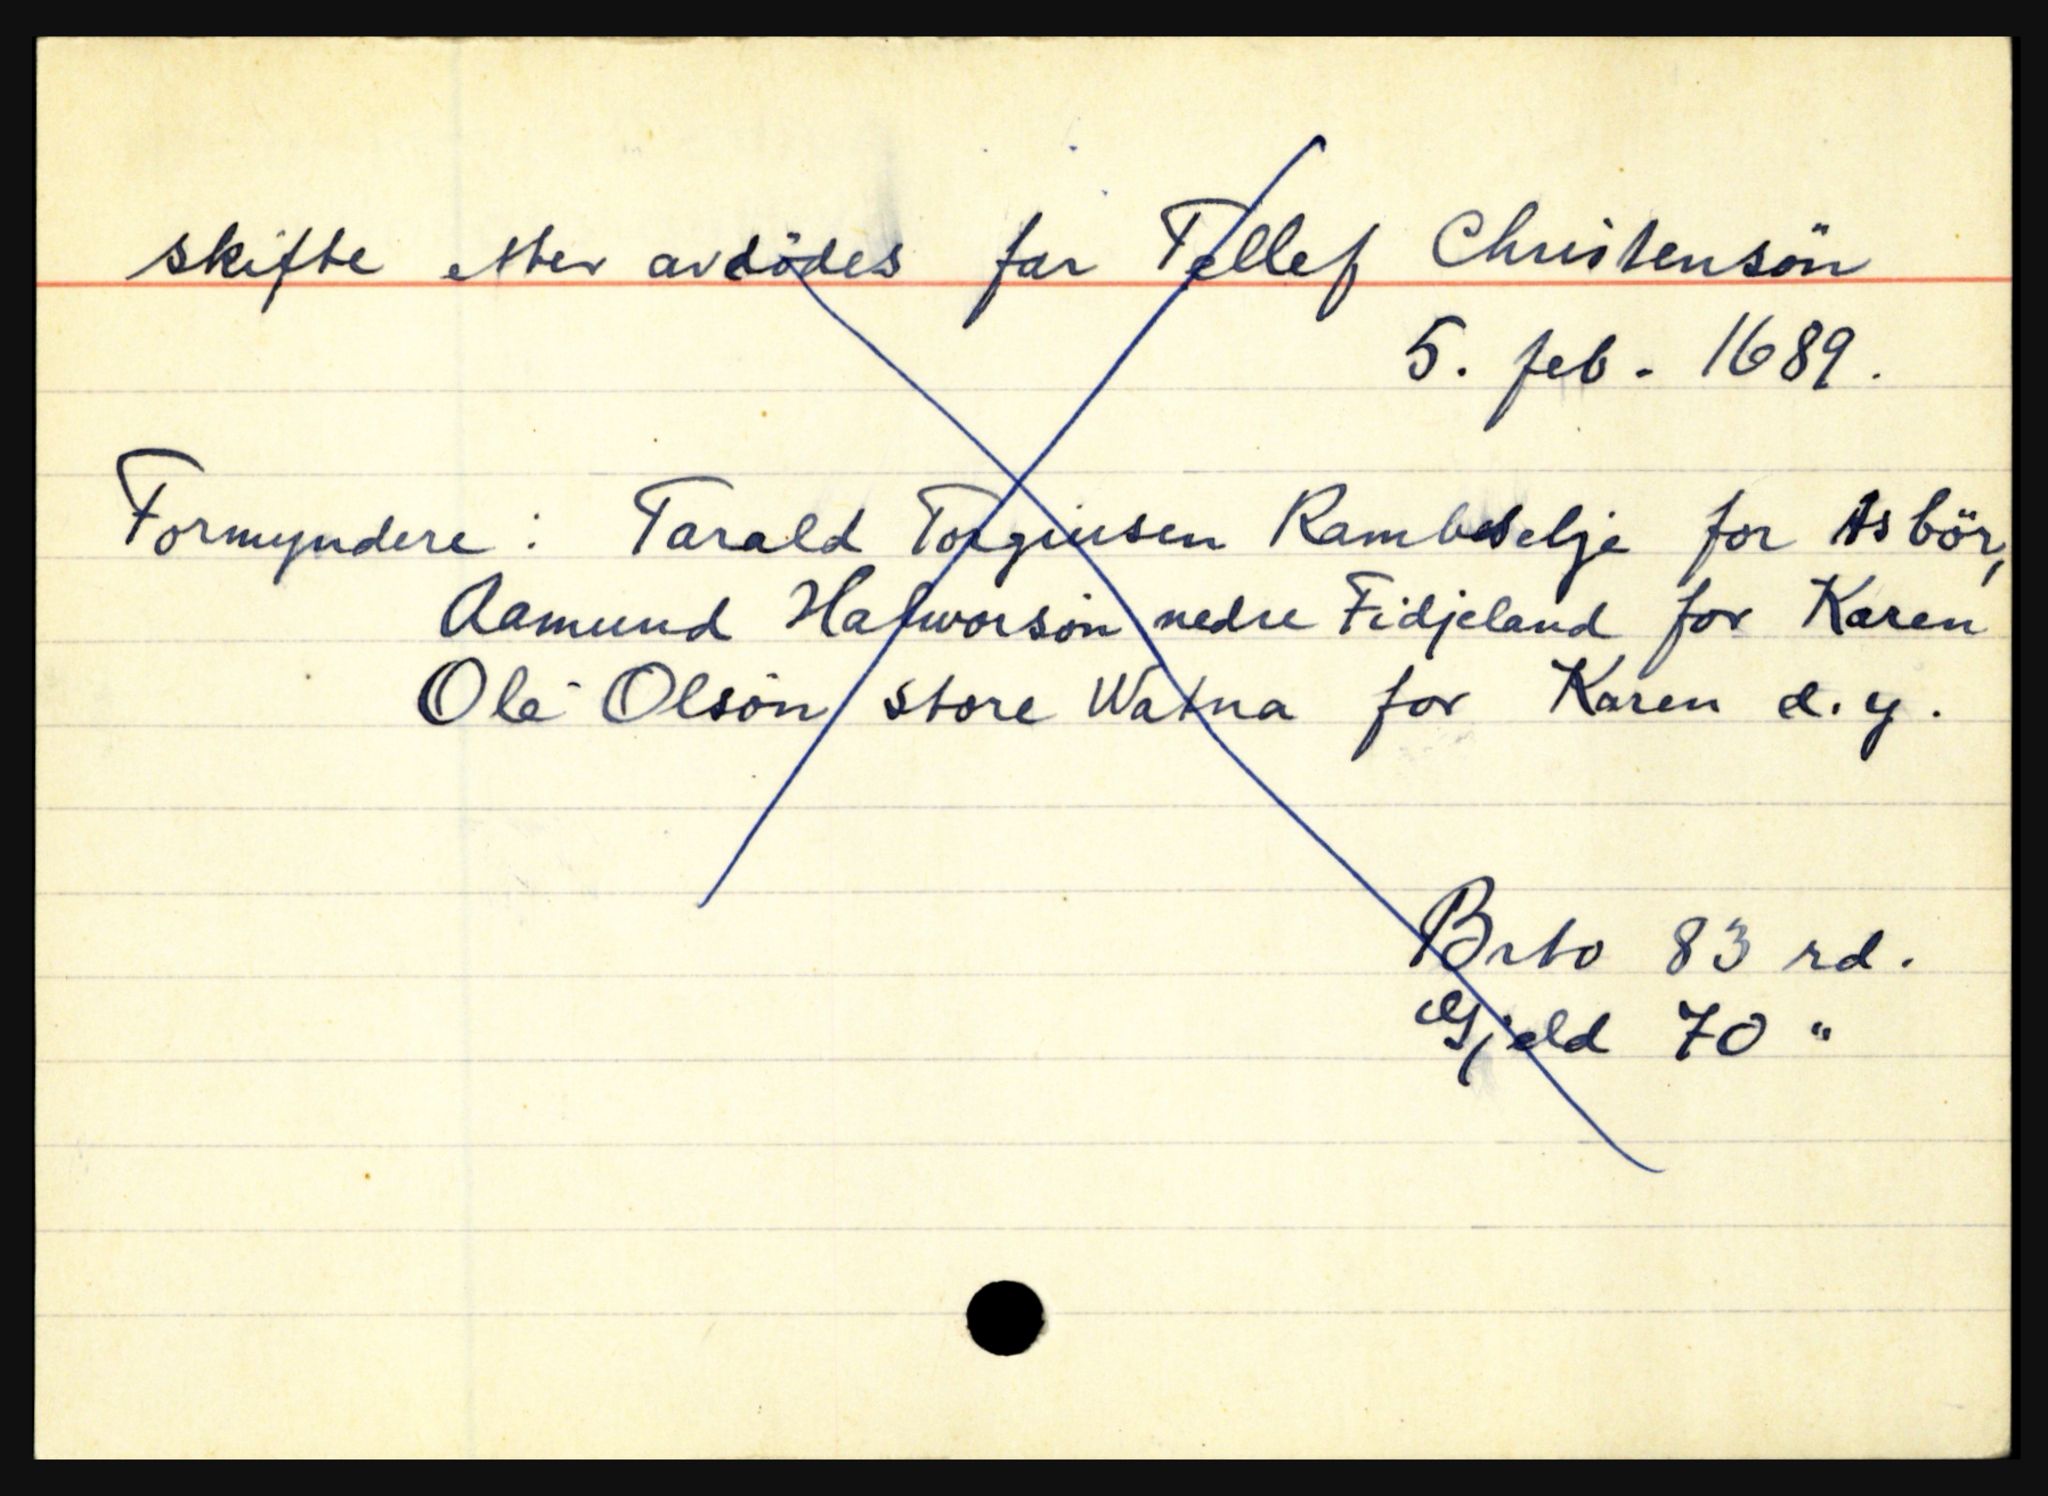 skifte etter avdödes far Tellef Christensön
5. feb. 1689.
Formyndere: Tarald Torgiusen Rambeselje for Asbör,
Aamund Halworsön nedre Fidjeland for Karen
Ole Olsön store Watna for Karen d.y.
Brto 83 rd.
Gjeld 70 "